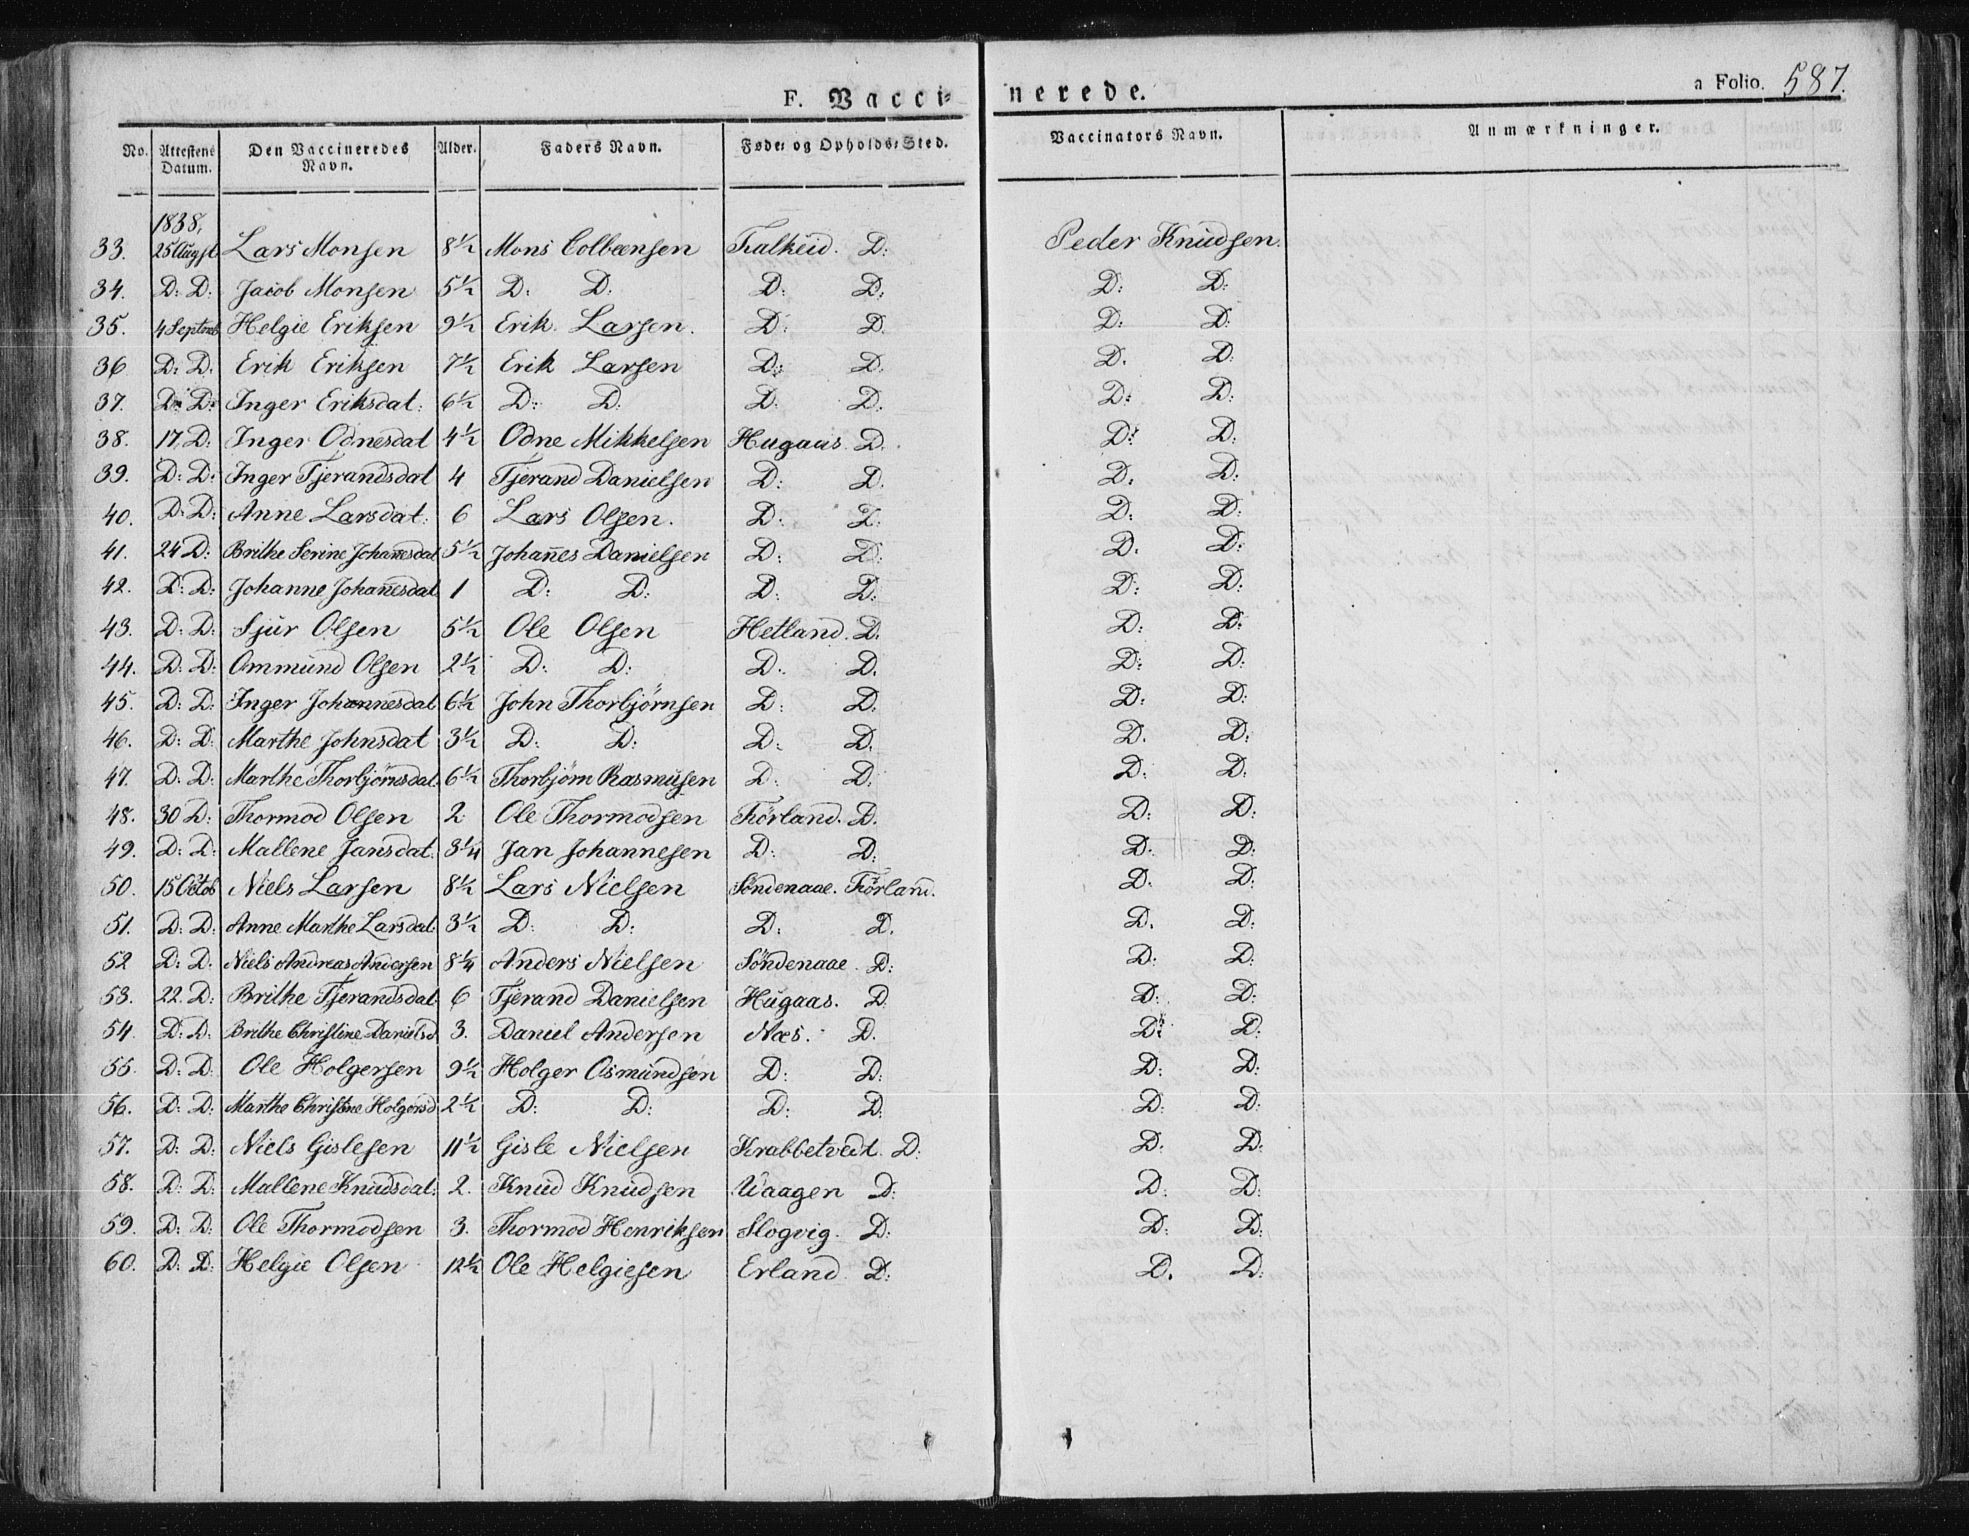 F. Vaccinerede. a Folio. 587.
No. Attestens Datum. Den Vaccineredes Navn. Alder. Faders Navn. Føde- og Opholds-Sted. Vaccinators Navn. Anmærkninger.
1838,
33. 25 Augst Lars Monsen 8½ Mons Colbeensen Falkeid. D: Peder Knudsen.
34. D: D: Jacob Monsen 5½ D: D: D: D: D: D:
35. 4 Septemb Helgie Eriksen 9½ Erik Larsen. D: D. D: D:
36 D: D. Erik Eriksen 7½ Erik Larsen D: D. D. D:
37. D: D: Inger Eriksdat: 6½ D: D: D: D. D: D:
38. 17. D: Inger Odnesdat 4½ Odne Mikkelsen Hugaas. D. D: D:
39. D: D: Inger Tjerandsdat 4 Tjerand Danielsen D: D. D. D:
40. D: D: Anne Larsdat: 6 Lars Olsen. D: D: D: D:
41. 24 D: Brithe Serine Johan̄esdat 5½ Johan̄es Danielsen D: D: D. D:
42. D: D: Johanne Johan̄esdat 1 D: D: D: D: D: D:
43. D: D: Sjur Olsen 5½ Ole Olsen Hetland. D. D: D:
44. D: D: Ommund Olsen 2½ D: D: D. D. D: D:
45. D: D: Inger Johannesdat 6½ John Thorbjørnsen D: D. D: D:
46. D: D: Marthe Johnsdat 3½ D: D: D: D. D. D:
47. D: D: Marthe Thorbjørnsdat 6½ Thorbjørn Rasmusen D: D. D: D:
48. 30 D: Thormod Olsen 2 Ole Thormodsen Førland. D. D: D:
49. D: D: Mallene Jansdat. 3¼ Jan Johannesen D: D: D: D:
50. 15 Octob Niels Larsen 8½ Lars Nielsen Søndenaae. Førlan̄.
D. D:
51. D: D: Anne Marthe Larsdat 3½ D: D: D: D. D. D:
52 D: D. Niels Andreas Andersen 8¼ Anders Nielsen Søndenaae. D: D: D:
53. 22. D: Brithe Tjerandsdat 6 Tjerand Danielsen Hugaas. D D: D:
54. D: D. Brithe Christine Danielsd 3. Daniel Andersen Næs. D. D: D:
55. D: D. Ole Holgersen 9½ Holger Osmundsen D: D: D: D:
56. D: D: Marthe Christine Holgersd 2½ D: D: D: D: D: D:
57. D: D: Niels Gislesen 11½ Gisle Nielsen Krabbetvedt. D: D: D:
58. D: D: Mallene Knudsdat: 2. Knud Knudsen Waagen D: D: D:
59. D: D: Ole Thormodsen 3. Thormod Henriksen Slogvig. D: D: D:
60. D: D: Helgie Olsen 12½ Ole Helgiesen Erland D: D. D: